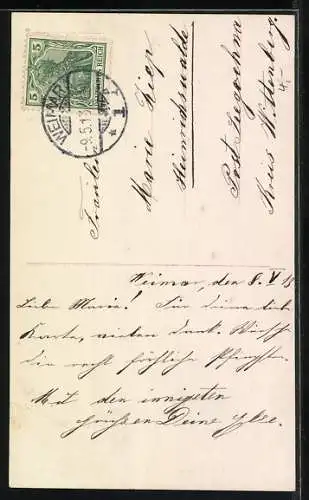 5 DEUTSCHES REICH 5
WEIMAR
-9.5.13
1
Fräulein
Marie Ziep
Heinrichswalde
Post Zegochna
Kreis Wittenberg.
Weimar, den 8. V 13
Liebe Maria! Für deine liebe
Karte, vielen Dank. Wünsche
dir recht fröhliche Pfingsten.
Mit den innigsten
Grüssen Deine Else.